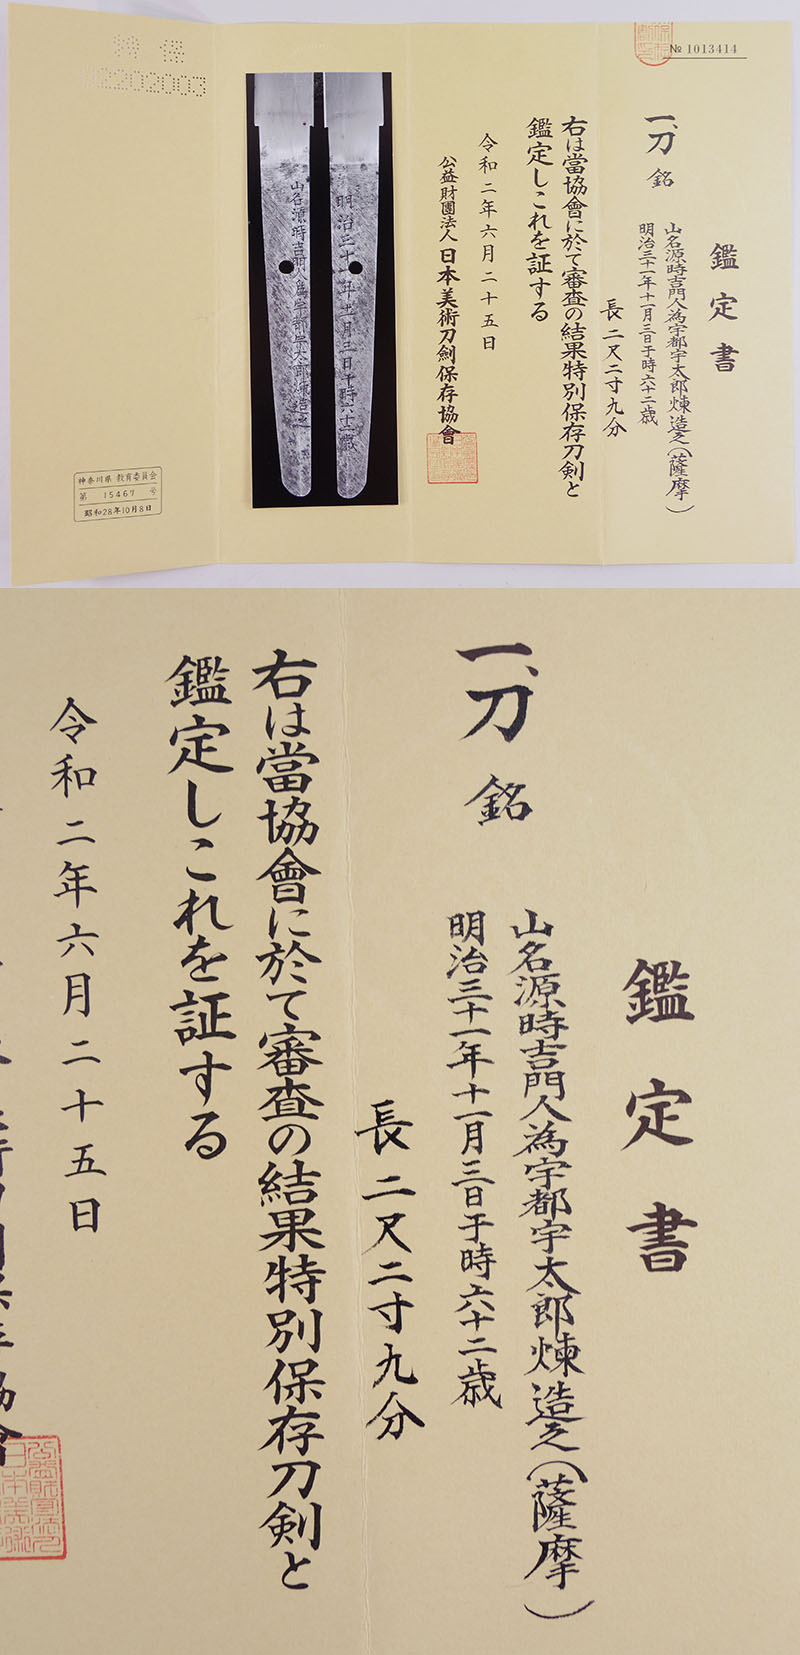 № 1013414
鑑定書
一、刀 銘
山名源時吉門人為宇都宇太郎煉造之(薩摩)
明治三十一年十一月三日于時六十二歳
長二尺二寸九分
右は當協會に於て審査の結果特別保存刀剣と
鑑定しこれを証する
令和二年六月二十五日
公益財團法人 日本美術刀剣保存協會
明治三十一年十一月三日于時六十二歳
山名源時吉門人為宇都宇太郎煉造之
特保
2202003
神奈川県教育委員会
第 15467 号
昭和28年10月8日
鑑定書
一、刀 銘
山名源時吉門人為宇都宇太郎煉造之(薩摩)
明治三十一年十一月三日于時六十二歳
長二尺二寸九分
右は當協會に於て審査の結果特別保存刀剣と
鑑定しこれを証する
令和二年六月二十五日